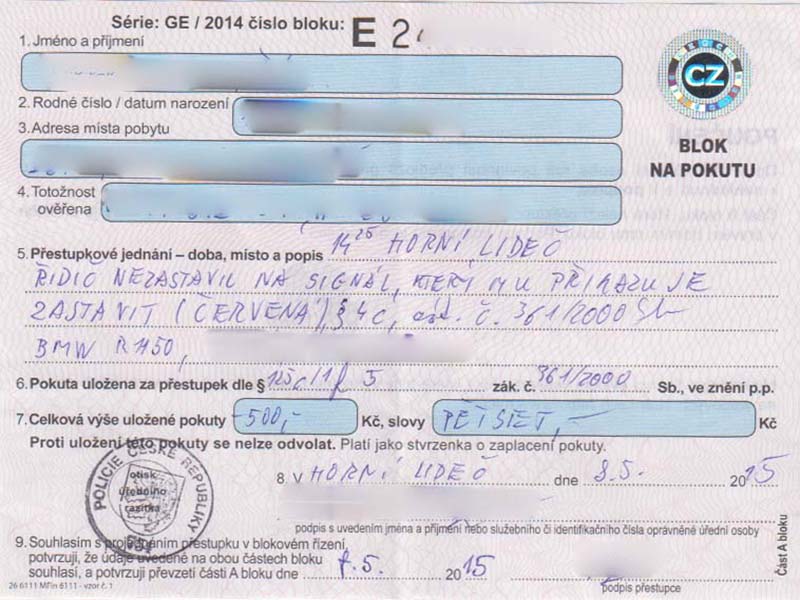 Série: GE / 2014 číslo bloku: E 2
1. Jméno a příjmení
CZ
2. Rodné číslo / datum narození
3. Adresa místa pobytu
BLOK
NA POKUTU
4. Totožnost
ověřena
5. Přestupkové jednání – doba, místo a popis 14 25 HORNÍ LIDEČ
ŘIDIČ NEZASTAVIL NA SIGNÁL, KTERÝ MU PŘIKAZUJE
ZASTAVIT (ČERVENÁ), § 4c, č. 361/2000 Sb
BMW R1150,
6. Pokuta uložena za přestupek dle § 125c/1f 5 zák. č. 361/2000 Sb., ve znění p.p.
7. Celková výše uložené pokuty -500,- Kč, slovy PĚTSET,- Kč
Proti uložení této pokuty se nelze odvolat. Platí jako stvrzenka o zaplacení pokuty.
POLICIE ČESKÉ REPUBLIKY
otisk
úředního
razítka
8. V HORNÍ LIDEČ dne 8.5. 2015
podpis s uvedením jména a příjmení nebo služebního či identifikačního čísla oprávněné úřední osoby
9. Souhlasím s projednáním přestupku v blokovém řízení,
potvrzuji, že údaje uvedené na obou částech bloku
souhlasí, a potvrzuji převzetí části A bloku dne 8.5. 2015
podpis přestupce
26 6111 MFin 6111 - vzor č. 1
Část A bloku